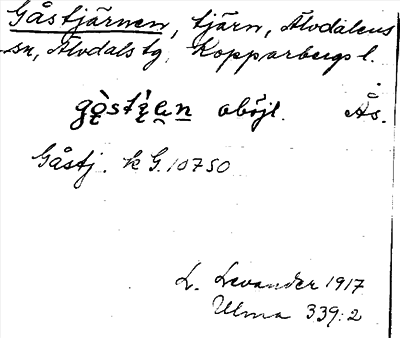 Gåstjärnen, tjärn, Älvdalens
sn, Älvdals tg, Kopparbergs l.
oböjl. Ås.
Gåstj. k G. 10750
L. Levander 1917
Ulma 339:2